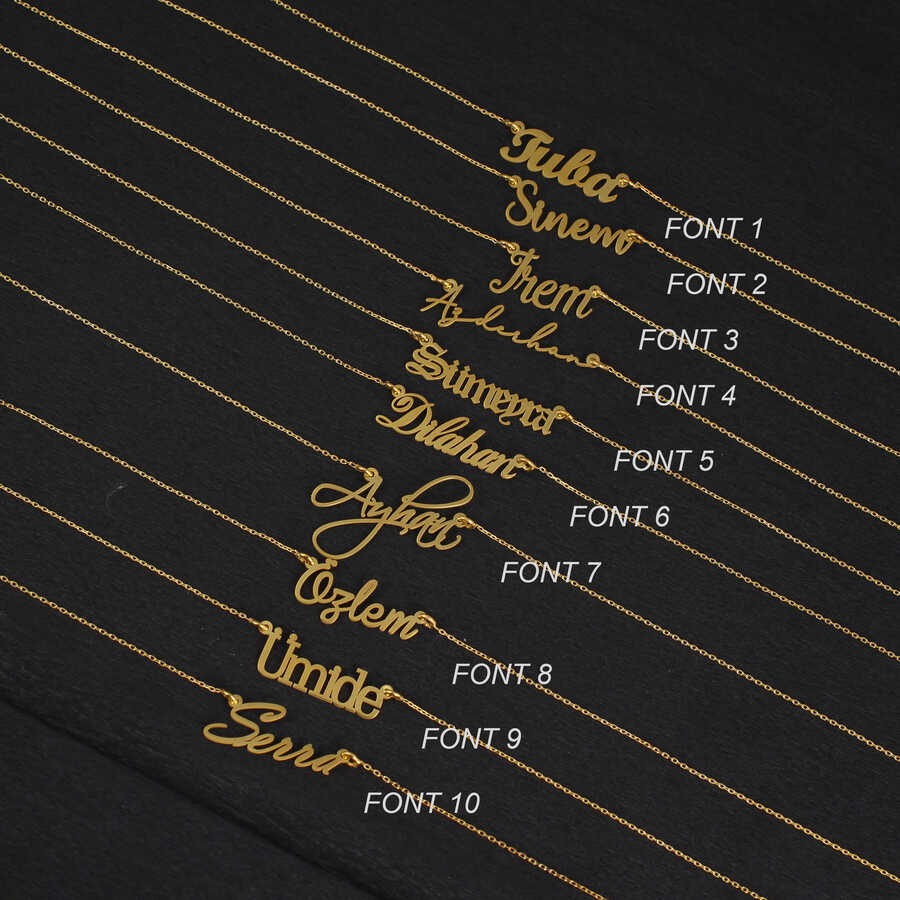 Tuba
FONT 1
Sinem
FONT 2
İrem
FONT 3
FONT 4
Sümeyra
FONT 5
Dilahan
FONT 6
Ayhan
FONT 7
Özlem
FONT 8
Ümide
FONT 9
Serra
FONT 10